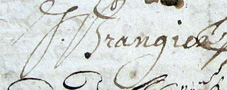 J. Brangier